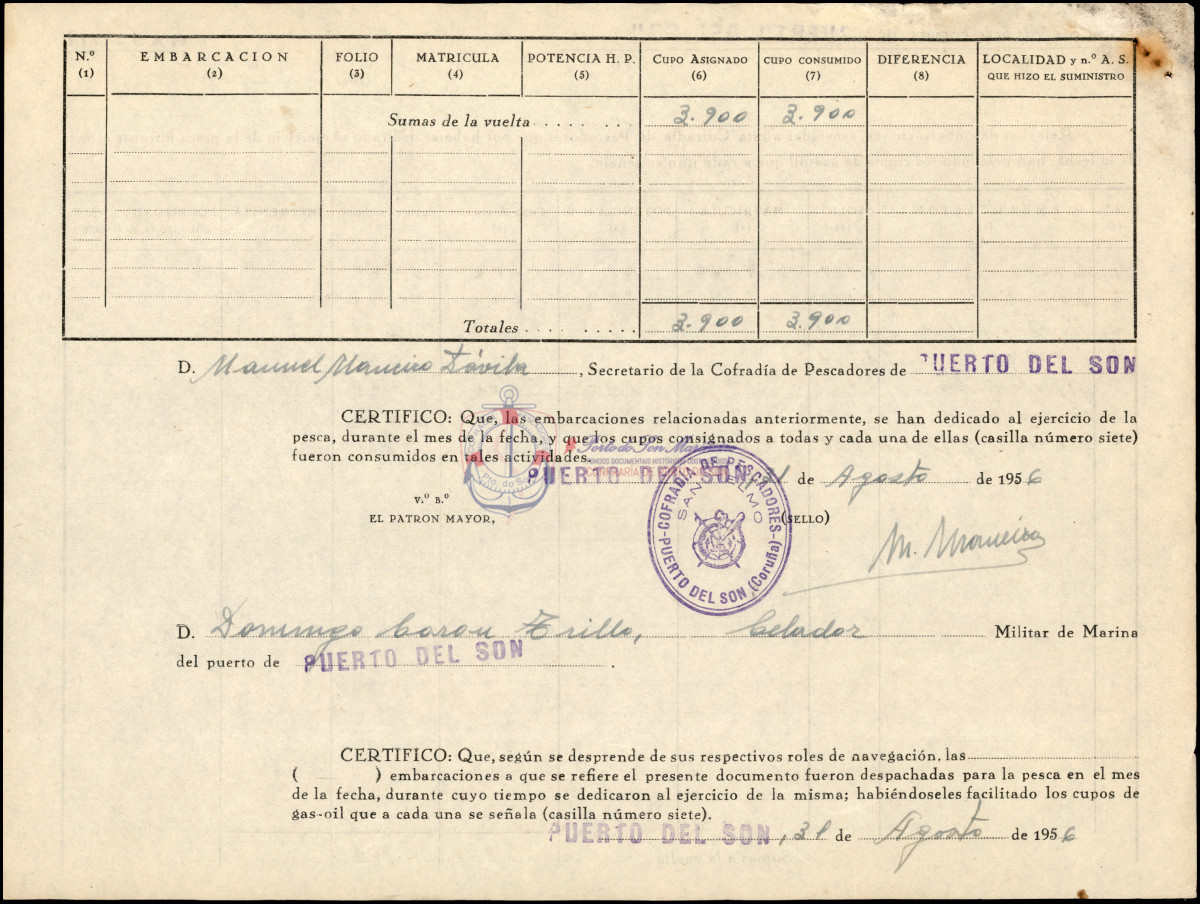 N.º EMBARCACION FOLIO MATRICULA POTENCIA H. P. CUPO ASIGNADO CUPO CONSUMIDO DIFERENCIA LOCALIDAD y n.º A. S.
(1) (2) (3) (4) (5) (6) (7) (8) QUE HIZO EL SUMINISTRO
Sumas de la vuelta 3.900 3.900
Totales 3.900 3.900
D. Manuel Maneiro Dávila, Secretario de la Cofradía de Pescadores de PUERTO DEL SON
CERTIFICO: Que, las embarcaciones relacionadas anteriormente, se han dedicado al ejercicio de la
pesca, durante el mes de la fecha, y que los cupos consignados a todas y cada una de ellas (casilla número siete)
fueron consumidos en tales actividades.
Porto do Son
Pto. do Son
PUERTO DEL SON 31 de Agosto de 1956
V.º B.º
EL PATRON MAYOR,
(SELLO)
COFRADIA DE PESCADORES
SAN TELMO
PUERTO DEL SON (Coruña)
M. Maneiro
D. Domingo Carou Trillo, Celador Militar de Marina
del puerto de PUERTO DEL SON .
CERTIFICO: Que, según se desprende de sus respectivos roles de navegación, las
( ) embarcaciones a que se refiere el presente documento fueron despachadas para la pesca en el mes
de la fecha, durante cuyo tiempo se dedicaron al ejercicio de la misma; habiéndoseles facilitado los cupos de
gas-oil que a cada una se señala (casilla número siete).
PUERTO DEL SON, 31 de Agosto de 1956